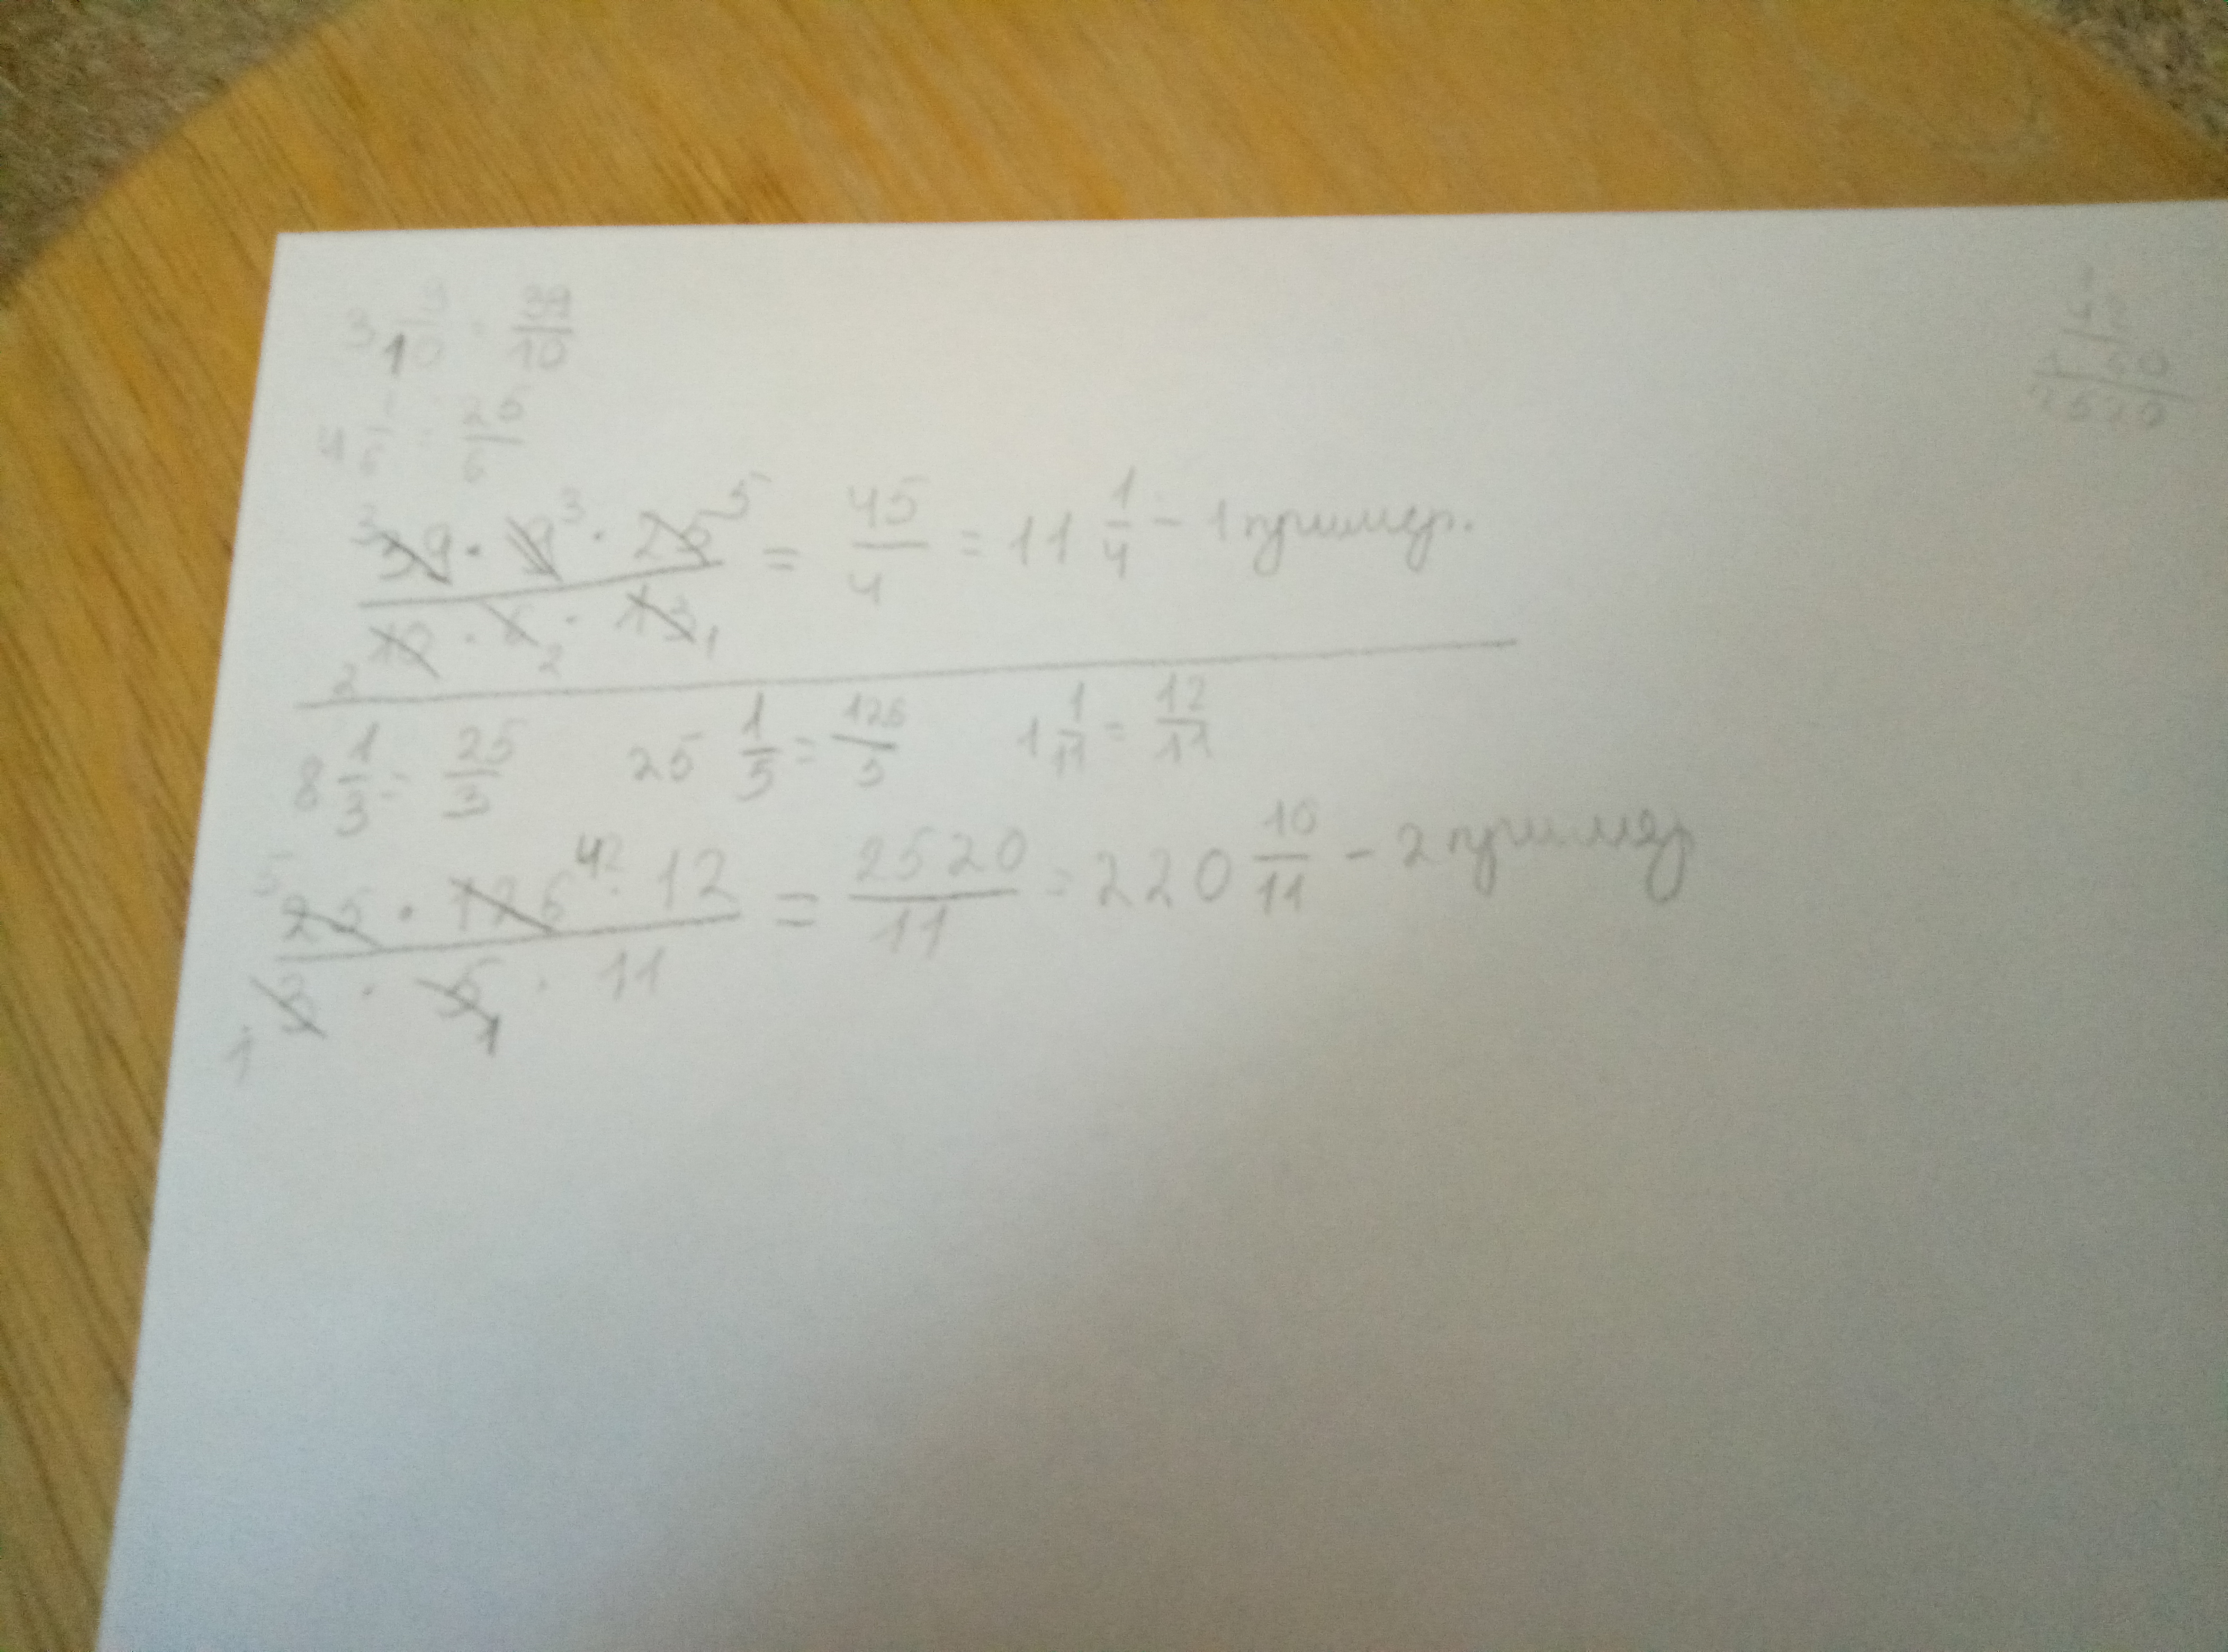 3 9/10 = 39/10
4 1/6 = 25/6
39 · 9 · 25 / 10 · 6 · 13 = 45/4 = 11 1/4 - 1 пример.
8 1/3 = 25/3 25 1/5 = 126/5 1 1/11 = 12/11
25 · 126 · 12 / 3 · 5 · 11 = 2520/11 = 220 10/11 - 2 пример
42
2520